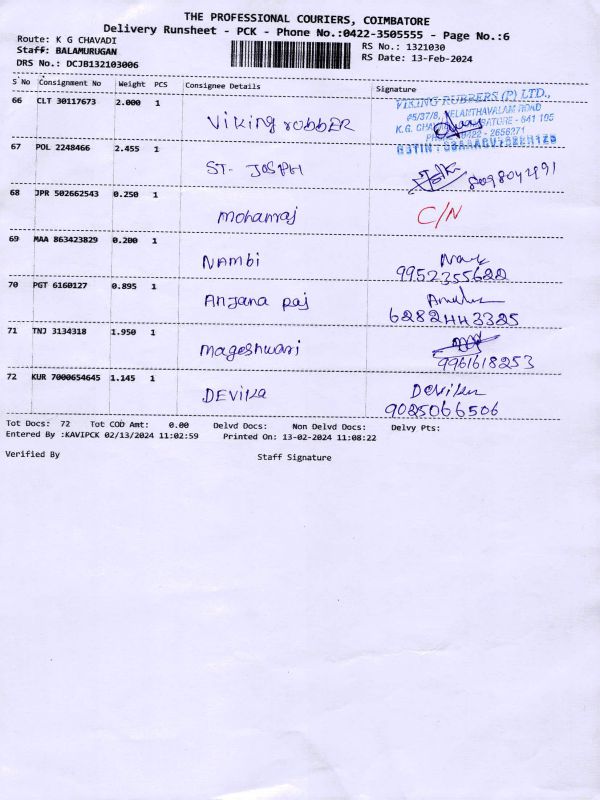 THE PROFESSIONAL COURIERS, COIMBATORE
Delivery Runsheet - PCK - Phone No.:0422-3505555 - Page No.:6
Route: K G CHAVADI
Staff: BALAMURUGAN
DRS No.: DCJB132103006
RS No.: 1321030
RS Date: 13-Feb-2024
S No Consignment No Weight PCS Consignee Details Signature
66 CLT 30117673 2.000 1
Viking rubber
VIKING RUBBERS (P) LTD.,
#5/37/8, VELANTHAVALAM ROAD
K.G. COIMBATORE - 641 105
0422 - 2656271
67 POL 2248466 2.455 1
ST- JOSPH
68 JPR 502662543 0.250 1
mohanraj C/N
69 MAA 863423829 0.200 1
NAmbi
9952355622
70 PGT 6160127 0.895 1
Anjana raj
6282443325
71 TNJ 3134318 1.950 1
mageshwari
9961618253
72 KUR 7000654645 1.145 1
DEVika Devika
9025066506
Tot Docs: 72 Tot COD Amt: 0.00 Delvd Docs: Non Delvd Docs: Delvy Pts:
Entered By :KAVIPCK 02/13/2024 11:02:59 Printed On: 13-02-2024 11:08:22
Verified By Staff Signature